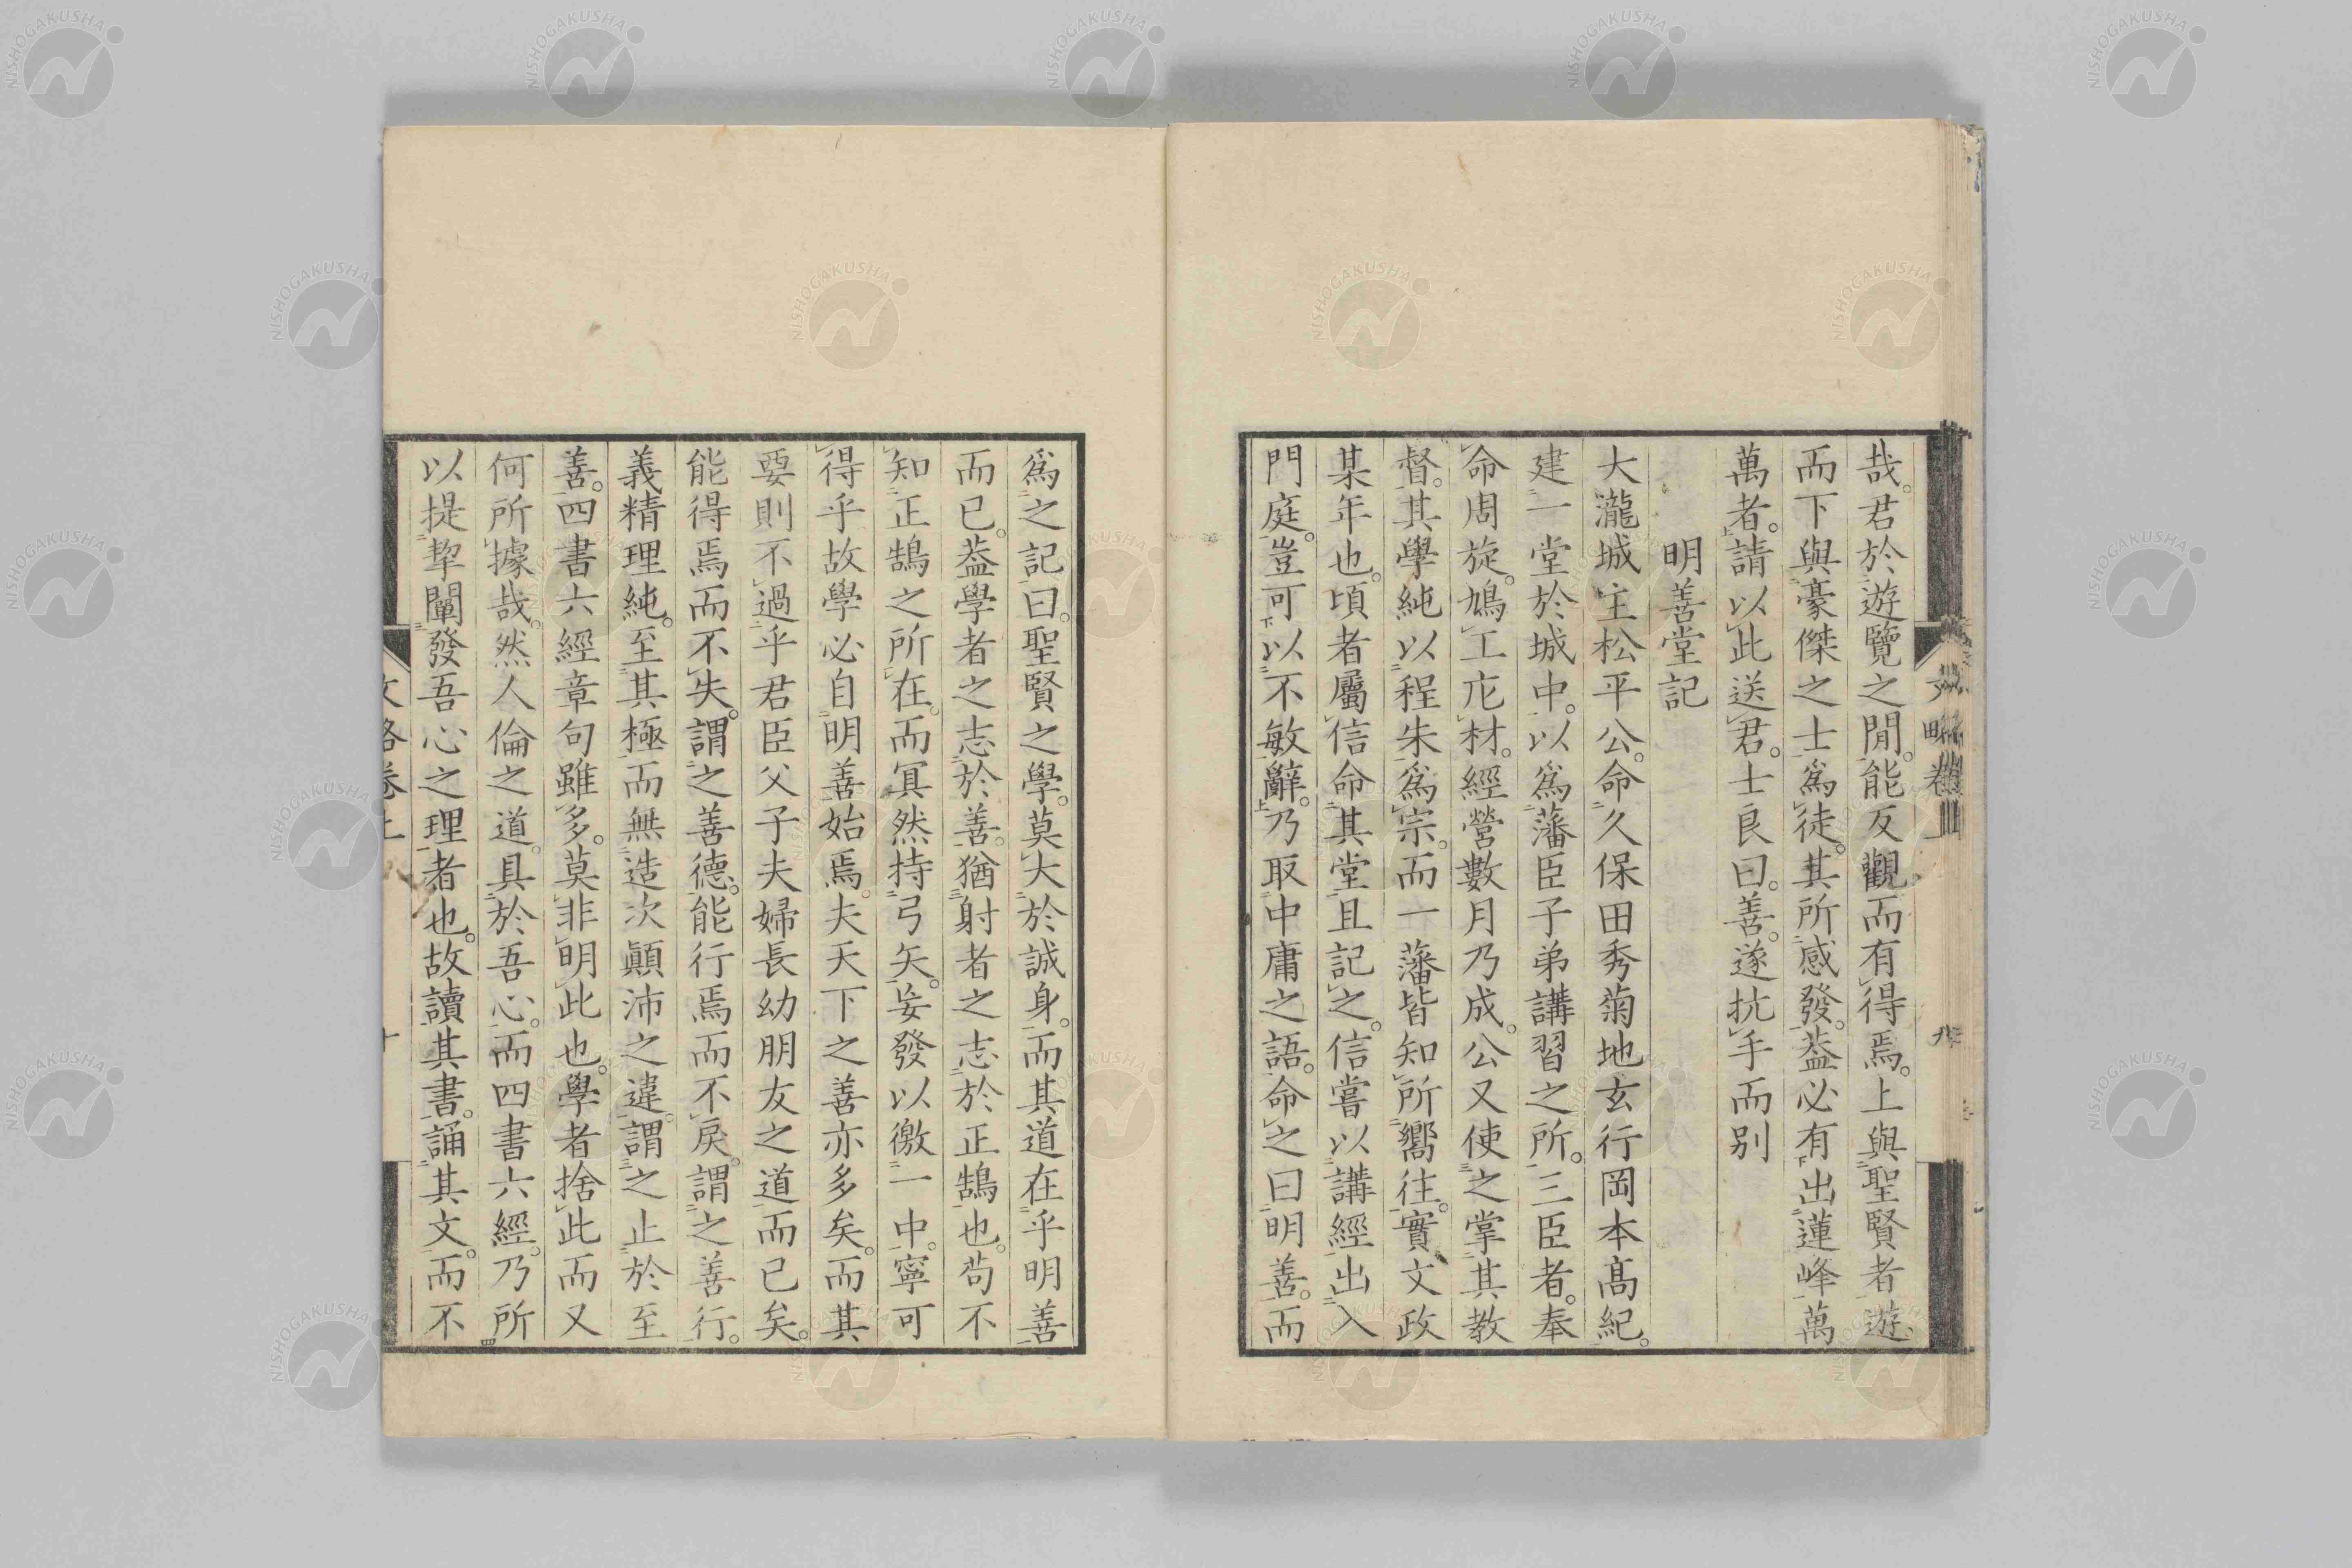 哉。君於遊覽之閒。能反觀而有得焉。上與聖賢者遊
而下與豪傑之士爲徒。其所感發。葢必有出蓮峰萬
萬者。請以此送君。士良曰。善。遂抗手而別
明善堂記
大瀧城主松平公。命久保田秀菊地玄行岡本髙紀。
建一堂於城中。以爲藩臣子弟講習之所。三臣者。奉
命周旋。鳩工庀材。經營數月乃成。公又使之掌其教
督。其學純以程朱爲宗。而一藩皆知所嚮往。實文政
某年也。頃者屬信命其堂且記之。信嘗以講經出入
門庭。豈可以不敏辭。乃取中庸之語。命之曰明善。而
爲之記曰。聖賢之學。莫大於誠身。而其道在乎明善
而已。葢學者之志於善。猶射者之志於正鵠也。苟不
知正鵠之所在。而冥然持弓矢。妄發以徼一中。寧可
得乎故學必自明善始焉。夫天下之善亦多矣。而其
要則不過乎君臣父子夫婦長幼朋友之道而已矣。
能得焉而不失。謂之善德。能行焉而不戾。謂之善行。
義精理純。至其極而無造次顚沛之違。謂之止於至
善。四書六經章句雖多。莫非明此也。學者捨此而又
何所據哉。然人倫之道。具於吾心。而四書六經。乃所
以提挈闡發吾心之理者也。故讀其書。誦其文。而不
文略卷上
十
NISHOGAKUSHA